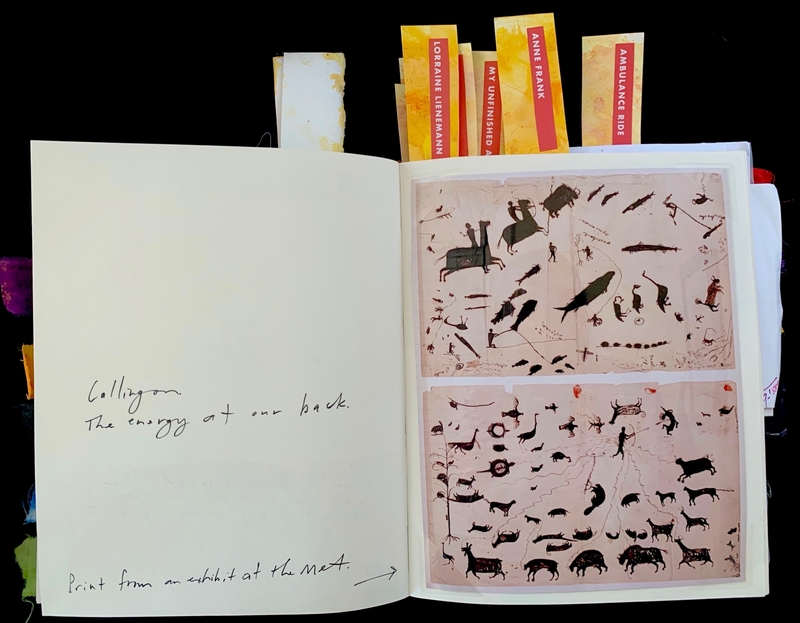 LORRAINE LIENEMANN
MY UNFINISHED A
ANNE FRANK
AMBULANCE RIDE
Calling on
The energy at our back.
Print from an exhibit at the MeA.